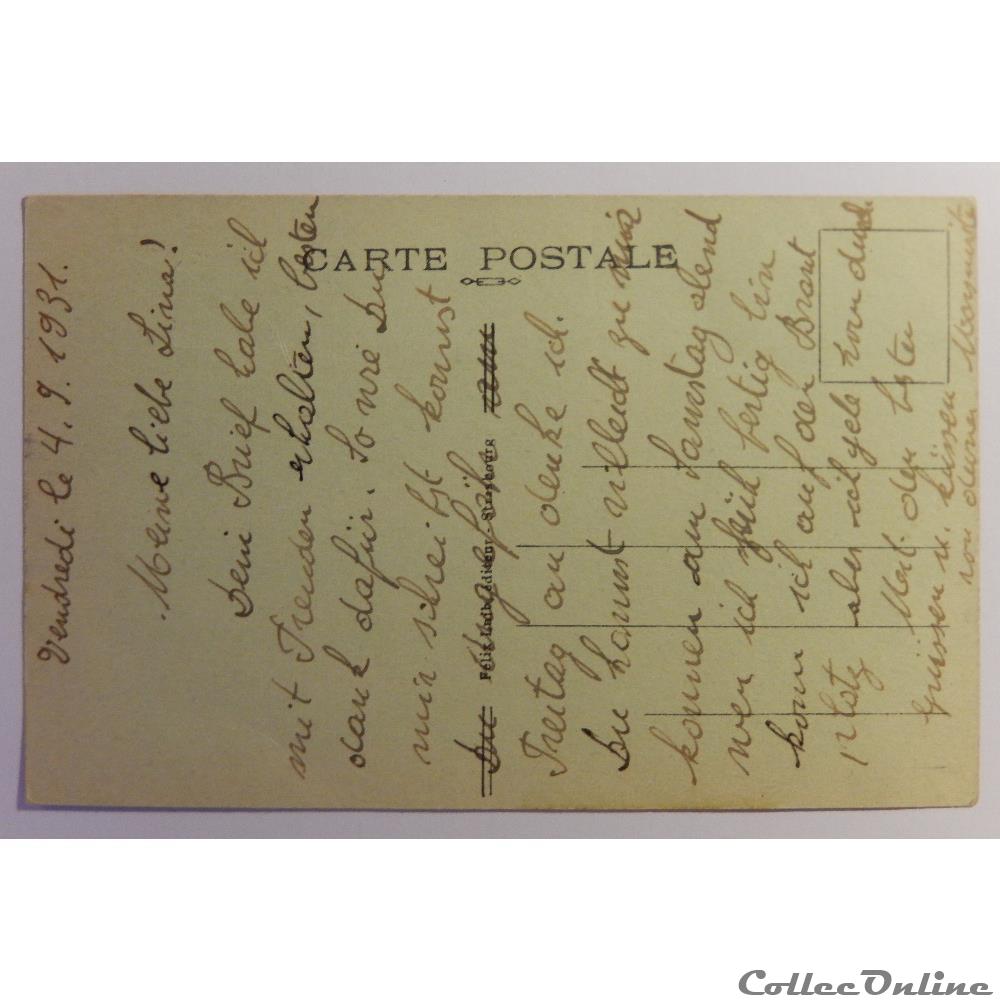 CARTE POSTALE
Félix Luib, éditeur, Strasbourg
Vendredi le 4. 9. 1931.
Meine liebe Lina!
Dein Brief habe ich
mit Freuden erhalten, besten
dank dafür. So wie Du
mir schreibst kommst
Du
Freitag an denke ich.
Du kannst villeicht zu mir
kommen am Samstag abend
wen ich früh fertig bin
kom ich auf der Brant
platz aber ich gehe
Mal. den besten
grüssen u. küssen
von deiner
CollecOnline